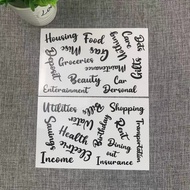 Housing Food
Car
Box
Gas
Clothing
Gifts
Misc
Deposit
Groceries
Maintenance
Beauty
Car
Entertainment
Personal
Utilities
Shopping
Bills
Water
Savings
Birthday
Rent
Transportation
Health
Electric
Dining
out
Income
Insurance